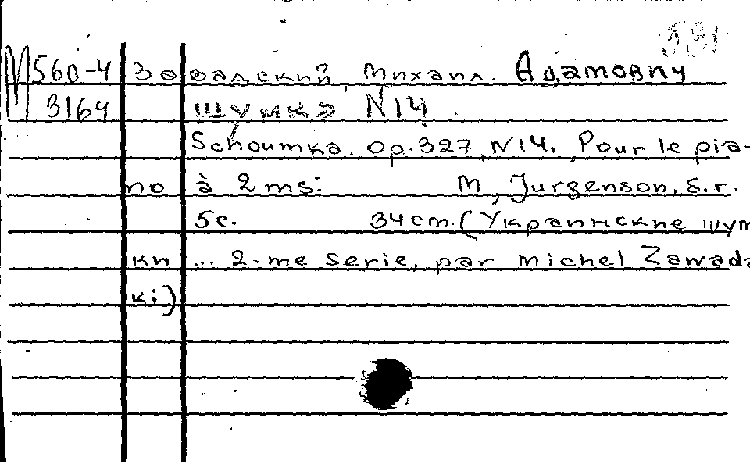 М560-4 Завадский, Михаил Адамович
3164 Шумка N14.
Schoumka. Op. 327, N14. Pour le pia-
no à 2 ms: М., Jurgenson, б.г.
5с. 34 cm. (Украинские шум
ки ... 2-me serie, par michel Zawads
ki)